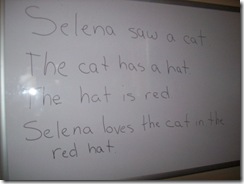 Selena saw a cat
The cat has a hat
The hat is red.
Selena loves the cat in the
red hat